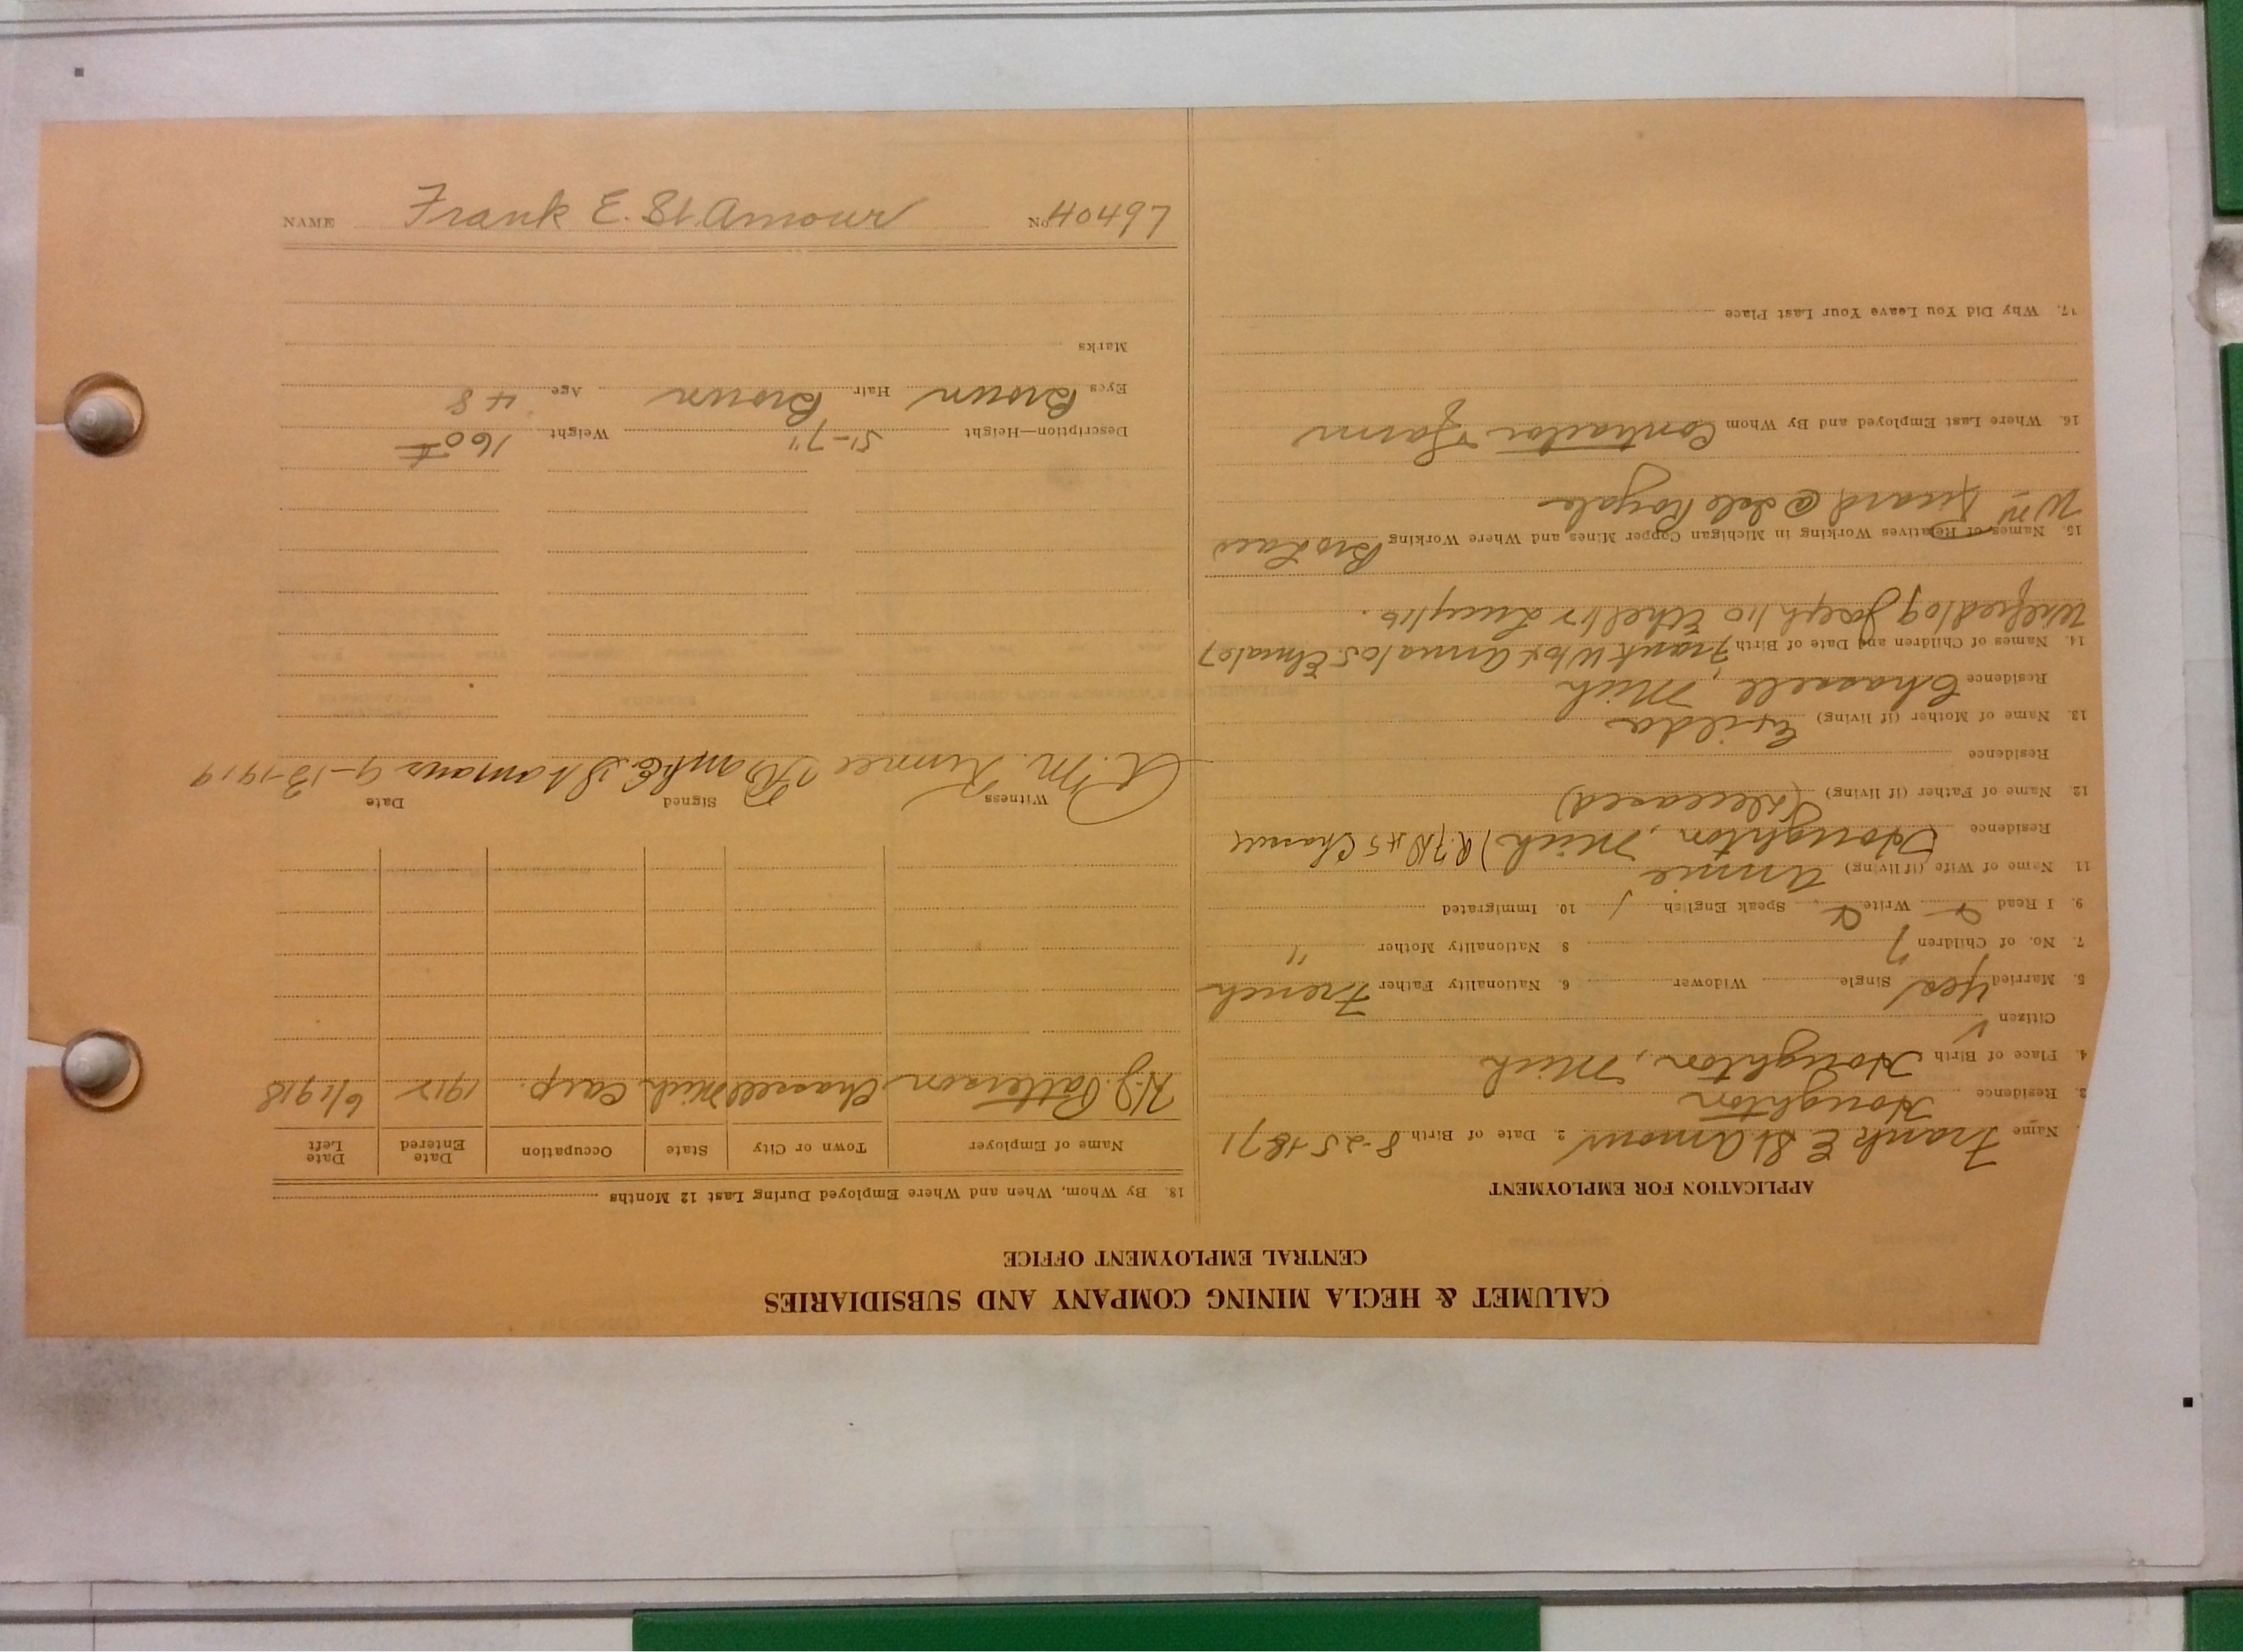 CALUMET & HECLA MINING COMPANY AND SUBSIDIARIES
CENTRAL EMPLOYMENT OFFICE
APPLICATION FOR EMPLOYMENT
Name Frank E St Amour 2. Date of Birth 8-25-1871
3. Residence Houghton
4. Place of Birth Houghton, Mich
Citizen
5. Married yes Single Widower 6. Nationality Father French
7. No. of Children 7 8 Nationality Mother "
9. I Read Write Speak English 10. Immigrated
11. Name of Wife (if living) Annie
Residence Houghton, Mich) R.F.D #5 Chassell
12. Name of Father (if living) (Deceased)
Residence
13. Name of Mother (if living)
Residence Chassell, Mich
14. Names of Children and Date of Birth Frank W Anna/05 Elma/07
Wilfred/09 Joseph/10 Ethel/12 Lucy/16.
15. Names of Relatives Working in Michigan Copper Mines and Where Working Bro Law
Wm @ Isle Royale
16. Where Last Employed and By Whom Contractor + farm
17. Why Did You Leave Your Last Place
18. By Whom, When and Where Employed During Last 12 Months
Name of Employer Town or City State Occupation Date Entered Date Left
H.J. Patterson Chassell Mich Carp. 1917 6/1918
Witness Signed Date
Frank E. St Amour 9-13-1919
Description—Height 5'-7" Weight 160 ±
Eyes Brown Hair Brown Age 48
Marks
NAME Frank E. St. Amour No. 40497